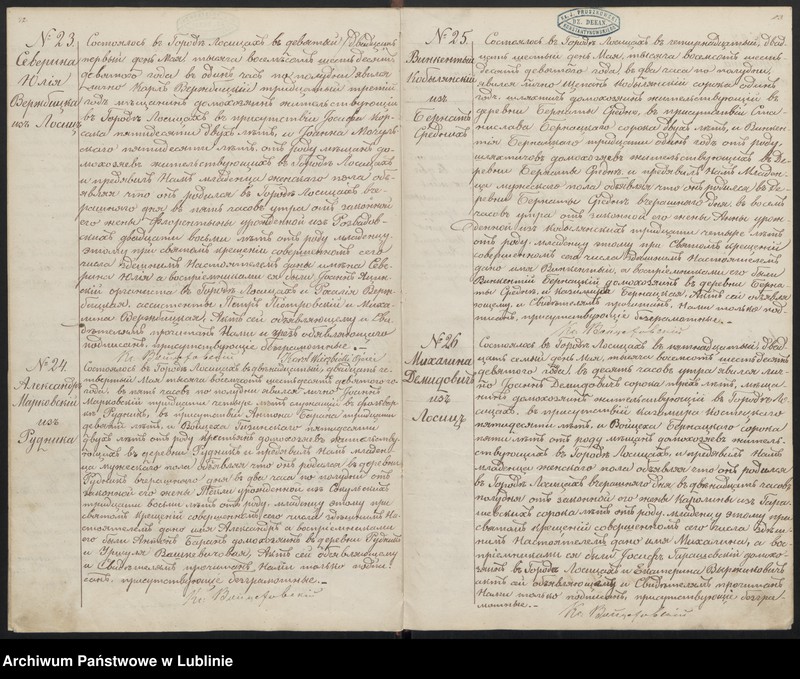 № 23.
Северина
Юлія
Вержбицка
изъ Лосицъ
Состоялось въ Городѣ Лосицахъ въ девятый/двадцать
первый день Мая тысяча восемьсотъ шестьдесятъ
девятаго года въ одинъ часъ по полудни явился
лично Карлъ Вержбицкій тридцати трехъ
годъ мѣщанинъ домохозяинъ жительствующій
въ Городѣ Лосицахъ въ присутствіи Іосифа
пятидесяти двухъ лѣтъ, и Іоанна
пятидесяти лѣтъ, отъ роду мѣщанъ до-
мохозяевъ жительствующихъ въ Городѣ Лосицахъ
и предъявилъ Намъ младенца женскаго пола объ-
являя что онъ родился въ Городѣ Лосицахъ вче-
рашняго дня въ пять часовъ утра отъ законной
его жены Флорентины урожденной изъ
двадцати восьми лѣтъ отъ роду младенцу
этому при святомъ крещеніи совершенномъ сего
числа Здѣшнимъ Настоятелемъ даны имена Севе-
рина Юлія а воспріемниками ея были Іоаннъ
органиста въ Городѣ Лосицахъ и Розалія Верж-
бицкая, ассистенты Петръ Піотровскій и Миха-
лина Вержбицкая, Актъ сей объявляющему и Сви-
дѣтелямъ прочитанъ Нами и чрезъ объявляющаго
подписанъ, присутствующіе безграмотные.-
№ 24.
Александръ
Марковскій
изъ
Рудника
Состоялось въ Городѣ Лосицахъ въ двѣнадцатый, двадцать че-
твертый Мая тысяча восемьсотъ шестьдесятъ девятаго
года въ пять часовъ по полудни явился лично Іоаннъ
Марковскій тридцати лѣтъ служащій въ фольвар-
кѣ Рудникъ, въ присутствіи Антона Барана тридцати
девяти лѣтъ и Войцеха пятидесяти
двухъ лѣтъ отъ роду крестьянъ домохозяевъ жительству-
ющихъ въ деревни Рудникъ и предъявилъ Намъ младен-
ца мужескаго пола объявляя что онъ родился въ деревни
Рудникъ вчерашняго дня въ два часа по полудни отъ
законной его жены Теклы урожденной изъ
тридцати восьми лѣтъ отъ роду, младенцу этому при
святомъ крещеніи совершенномъ сего числа Здѣшнимъ На-
стоятелемъ дано имя Александръ а воспріемниками
его были Антонъ Баранъ домохозяинъ въ деревни Рудникъ
и Урсула Вашкевичовая, Актъ сей объявляющему
и Свидѣтелямъ прочитанъ Нами только подпи-
санъ, присутствующіе безграмотные.-
№ 25.
Винкентій
Кобылянскій
изъ
Бернатъ
Среднихъ
Состоялось въ Городѣ Лосицахъ въ четырнадцатый, двад-
цать шестый день Мая, тысяча восемьсотъ шесть-
десятъ девятаго года, въ два часа по полудни,
явился лично Кобылянскій сорока одинъ
годъ шляхтичъ домохозяинъ жительствующій въ
деревни Бернаты Средне, въ присутствіи Ста-
нислава Бернацкаго сорока двухъ лѣтъ, и Винкен-
тія Бернацкаго тридцати одинъ годъ отъ роду
шляхтичовъ домохозяевъ жительствующихъ въ Де-
ревни Бернаты Средне, и предъявилъ Намъ Младен-
ца мужескаго пола объявляя что онъ родился въ Де-
ревни Бернаты Средне вчерашняго дня въ восемь
часовъ утра отъ законной его жены Анны урож-
денной изъ Кобылянскихъ тридцати четыре лѣтъ
отъ роду, младенцу этому при Святомъ крещеніи
совершенномъ сего числа Здѣшнимъ Настоятелемъ
дано имя Винкентій, а воспріемниками его были
Винкентій Бернацкій домохозяинъ въ деревни Берна-
ты Средне, и Бернацкая, Актъ сей объявля-
ющему и Свидѣтелямъ прочитанъ, Нами только под-
писанъ, присутствующіе безграмотные.-
№ 26
Михалина
Демидовичъ
изъ
Лосицъ
Состоялось въ Городѣ Лосицахъ въ пятнадцатый, двад-
цать седьмый день Мая, тысяча восемьсотъ шестьдесятъ
девятаго года, въ десять часовъ утра явился лич-
но Іоаннъ Демидовичъ сорока трехъ лѣтъ, мѣща-
нинъ домохозяинъ жительствующій въ Городѣ Ло-
сицахъ, въ присутствіи Казимира
пятидесяти лѣтъ, и Войцеха Бернацкаго сорока
пяти лѣтъ отъ роду мѣщанъ домохозяевъ житель-
ствующихъ въ Городѣ Лосицахъ, и предъявилъ Намъ
младенца женскаго пола объявляя что онъ родился
въ Городѣ Лосицахъ вчерашняго дня въ двѣнадцать часовъ
полудня отъ законной его жены Каролины изъ Гара-
шевскихъ сорока лѣтъ отъ роду, младенцу этому при
святомъ крещеніи совершенномъ сего числа Здѣш-
нимъ Настоятелемъ дано имя Михалина, а вос-
пріемниками ея были Іосифъ Гарашевскій домохо-
зяинъ въ Городѣ Лосицахъ и Екатерина
актъ сей объявляющему и Свидѣтелямъ прочитанъ
Нами только подписанъ, присутствующіе безгра-
мотные.-
Archiwum Państwowe w Lublinie